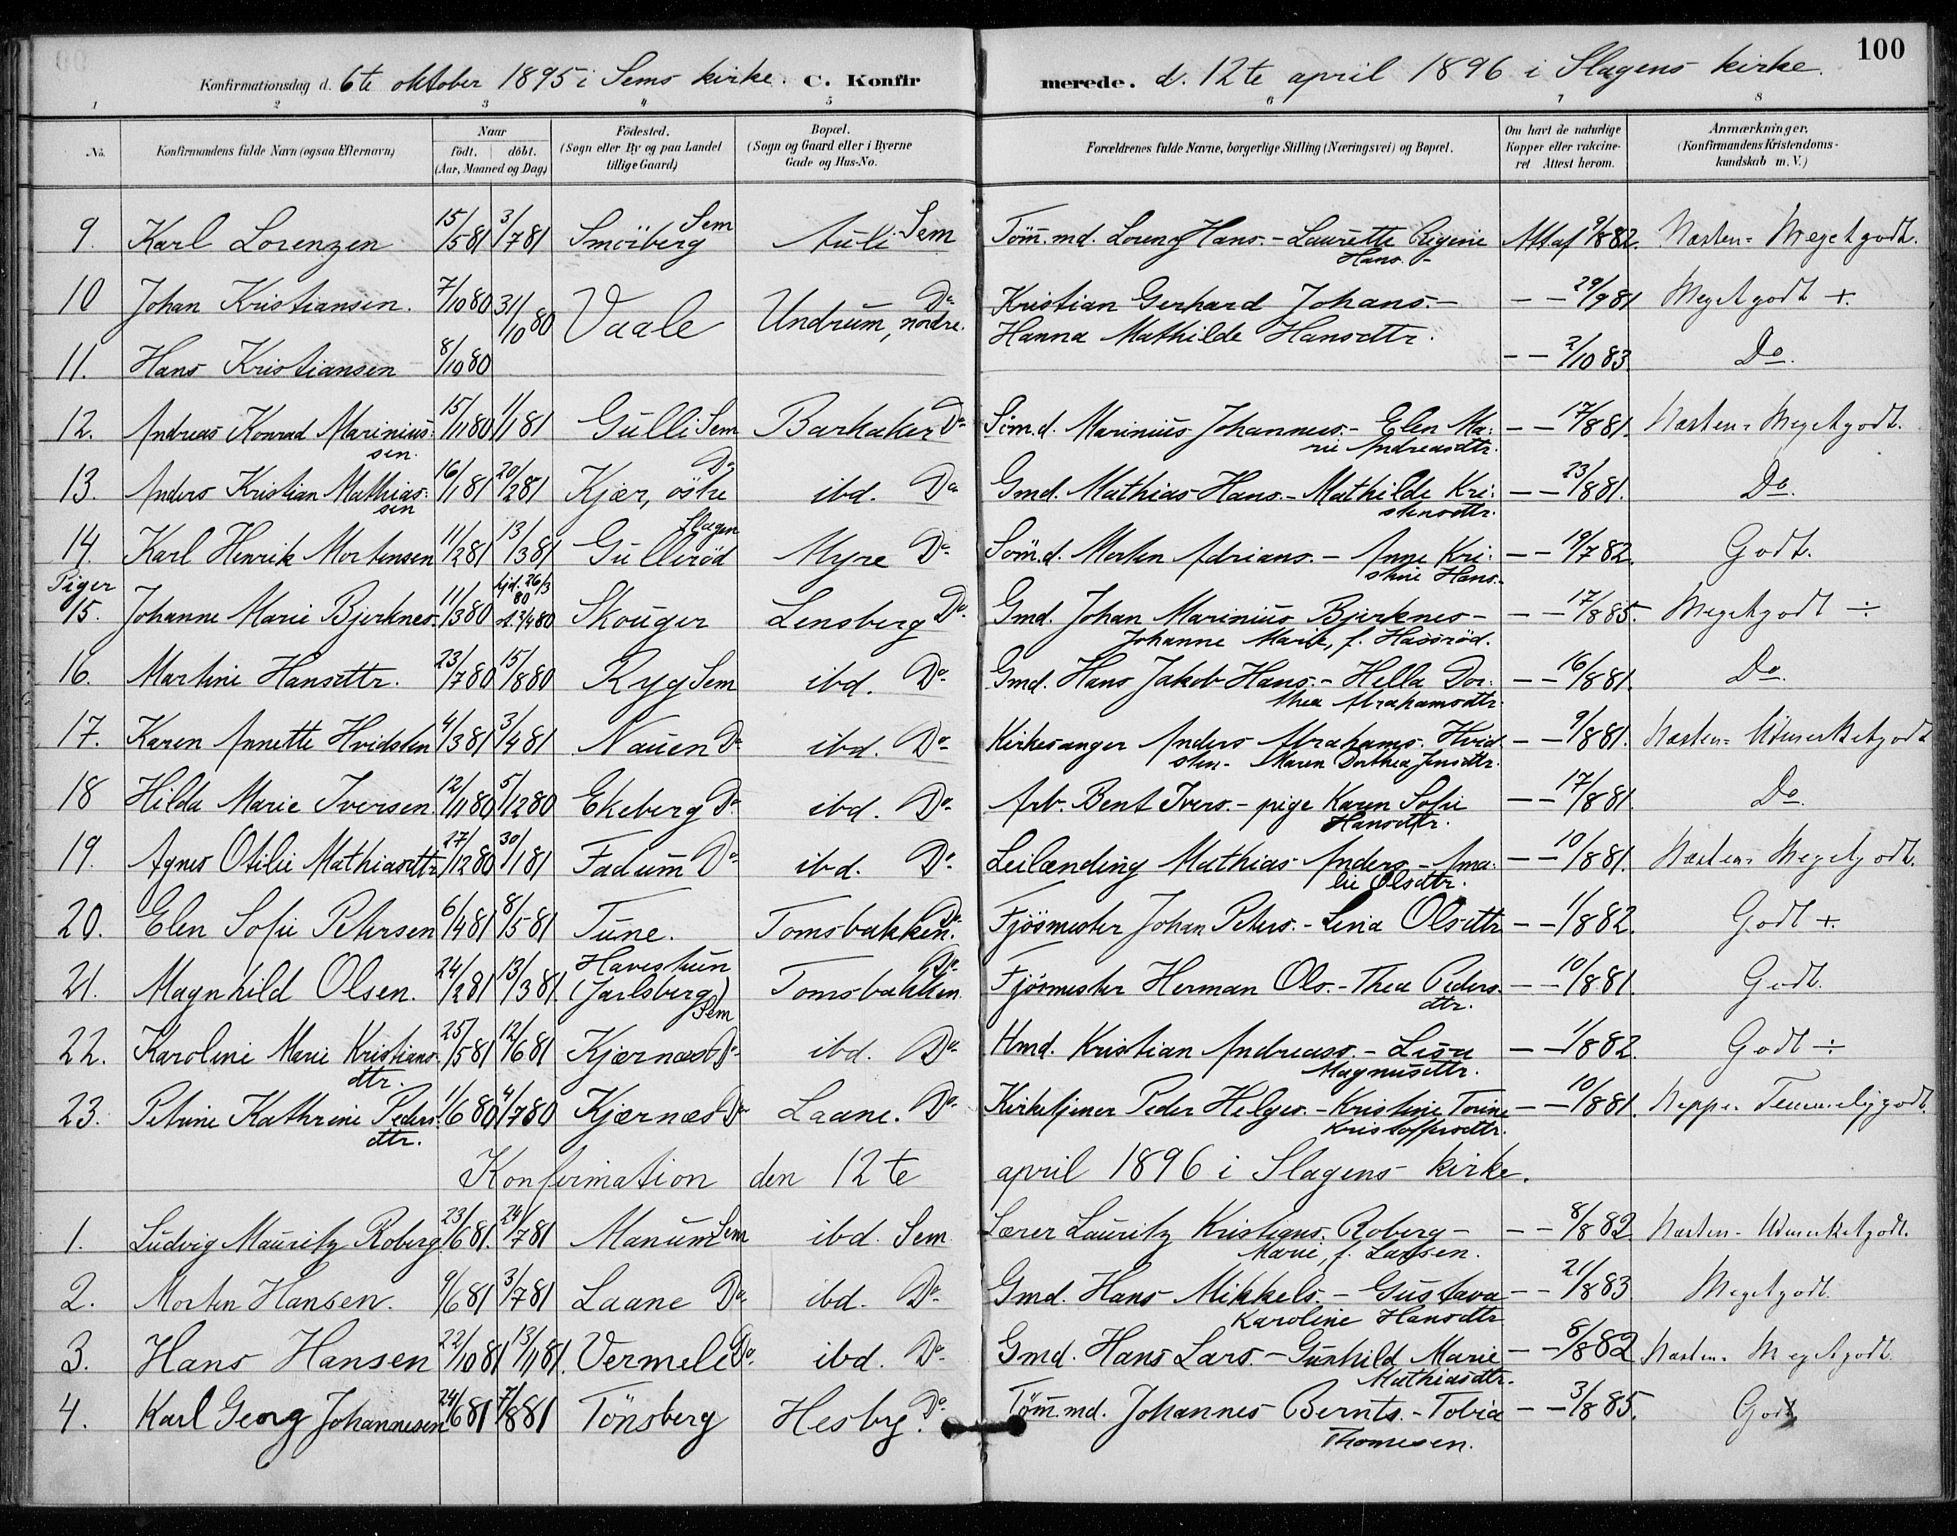 100
Konfirmationsdag d. 6te oktober 1895 i Sems kirke. C. Konfirmerede. d. 12te april 1896 i Slagens kirke.
1 2 3 4 5 6 7 8
No. Konfirmandens fulde Navn (ogsaa Efternavn) Naar født. døbt. (Aar, Maaned og Dag) Födested. (Sogn eller By og paa Landet tillige Gaard) Bopæl. (Sogn og Gaard eller i Byerne Gade og Hus-No. Forældrenes fulde Navne, borgerlige Stilling (Næringsvei) og Bopæl. Om havt de naturlige Kopper eller vakcineret Attest herom. Anmærkninger. (Konfirmandens Kristendomskundskab m. V.)
9. Karl Lorenzen 15/5 81 3/7 81 Smöiberg Sem Auli Sem Töm.md. Lorenz Hans. - Laurette Eigenie Hans. - Att af 9/8 82. Næsten - Megetgodt.
10 Johan Kristiansen. 7/10 80 31/10 80 Vaale Undrum, nordre. Do Kristian Gerhard Johans. - Hanna Mathilde Hansdtr. — — 29/9 81 Megetgodt +.
11. Hans Kristiansen 8/10 80 — — 2/10 83. Do.
12. Andreas Konrad Mariniussen. 15/11 80 1/1 81 Gulli Sem Barkaker Do Söm.d. Marinius Johannes. - Elen Marie Andreasdtr. — — 17/8 81. Næsten - Megetgodt.
13. Anders Kristian Mathiassen 16/1 81 20/2 81 Kjær, östre Do ibd. Do Gmd. Mathias Hans. - Mathilde Kristensdtr. — — 23/8 81. Do.
14. Karl Henrik Mortensen 11/2 81 13/3 81 Gulleröd Slagen Myre Do Söm.d. Morten Adrians. - Anne Kristine Hans. — — 19/7 82. Godt.
Piger
15. Johanne Marie Bjerknes 11/3 80 hjd. 26/3 80 Skouger Lensberg Do Gmd. Johan Marinius Bjerknes - Johanne Marie, f. Hassröd. — — 17/8 85. Megetgodt ÷
16. Martine Hansdtr. 23/7 80 15/8 80 Ryg Sem ibd. Do Gmd. Hans Jakob Hans. - Hella Dorthea Abrahamsdtr. — — 16/8 81. Do.
17. Karen Annette Hvidsten 4/3 81 3/4 81 Nauen Do ibd. Do Kirkesanger Anders Abrahams. Hvidsten - Maren Dorthea Jensdtr. — — 9/8 81. Næsten - Udmerketgodt
18 Hilda Marie Iversen. 12/11 80 5/12 80 Ekeberg Do ibd. Do Arb. Bent Ivers. - pige Karen Sofie Hansdtr. — — 17/8 81. Do.
19. Agnes Otilie Mathiasdtr 27/12 80 30/1 81 Fadum Do ibd. Do Leilænding Mathias Anders. - Amalie Olsdtr. — — 10/8 81. Næsten - Megetgodt.
20. Elen Sofie Petersen 6/4 81 8/5 81 Tune. Tomsbakken. Do Fjösmester Johan Peters. - Lina Olsdtr — — 1/8 82. Godt +.
21. Magnhild Olsen. 24/2 81 13/3 81. Havestuen (Jarlsberg) Sem Tomsbakken. Do Fjösmester Herman Ols. - Thea Pedersdtr. — — 10/8 81. Godt.
22. Karoline Marie Kristiansdtr. 25/5 81 12/6 81 Kjærnæs Do ibd. Do Hmd. Kristian Andreass. - Lisa Magnusdtr. — — 1/8 82. Godt ÷
23. Petrine Kathrine Pedersdtr. 1/6 80 4/7 80 Kjærnæs Do Laane. Do Kirketjener Peder Helges. - Kristine Torine Kristoffersdtr. — — 10/8 81. Neppe Temmeliggodt.
Konfirmation den 12te april 1896 i Slagens kirke.
1. Ludvig Mauritz Roberg 23/6 81. 24/7 81 Manum Sem ibd. Sem Lærer Lauritz Kristians. Roberg - Marie, f. Larssen. — — 8/8 82 Næsten - Udmerketgodt.
2. Morten Hansen. 9/6 81 3/7 81 Laane Do ibd. Do Gmd. Hans Mikkels. - Gustava Karoline Hansdtr — — 21/8 83 Megetgodt.
3. Hans Hansen 22/10 81 13/11 81. Vermelid Do. ibd. Do Gmd. Hans Lars. - Gunhild Marie Mathiasdtr. — — 8/8 82 Næsten - Megetgodt.
4. Karl Georg Johannesen 24/6 81 7/8 81 Tönsberg Hesby. Do Töm.md. Johannes Bernts. - Tobia Thomesen. — — 3/8 85. Godt